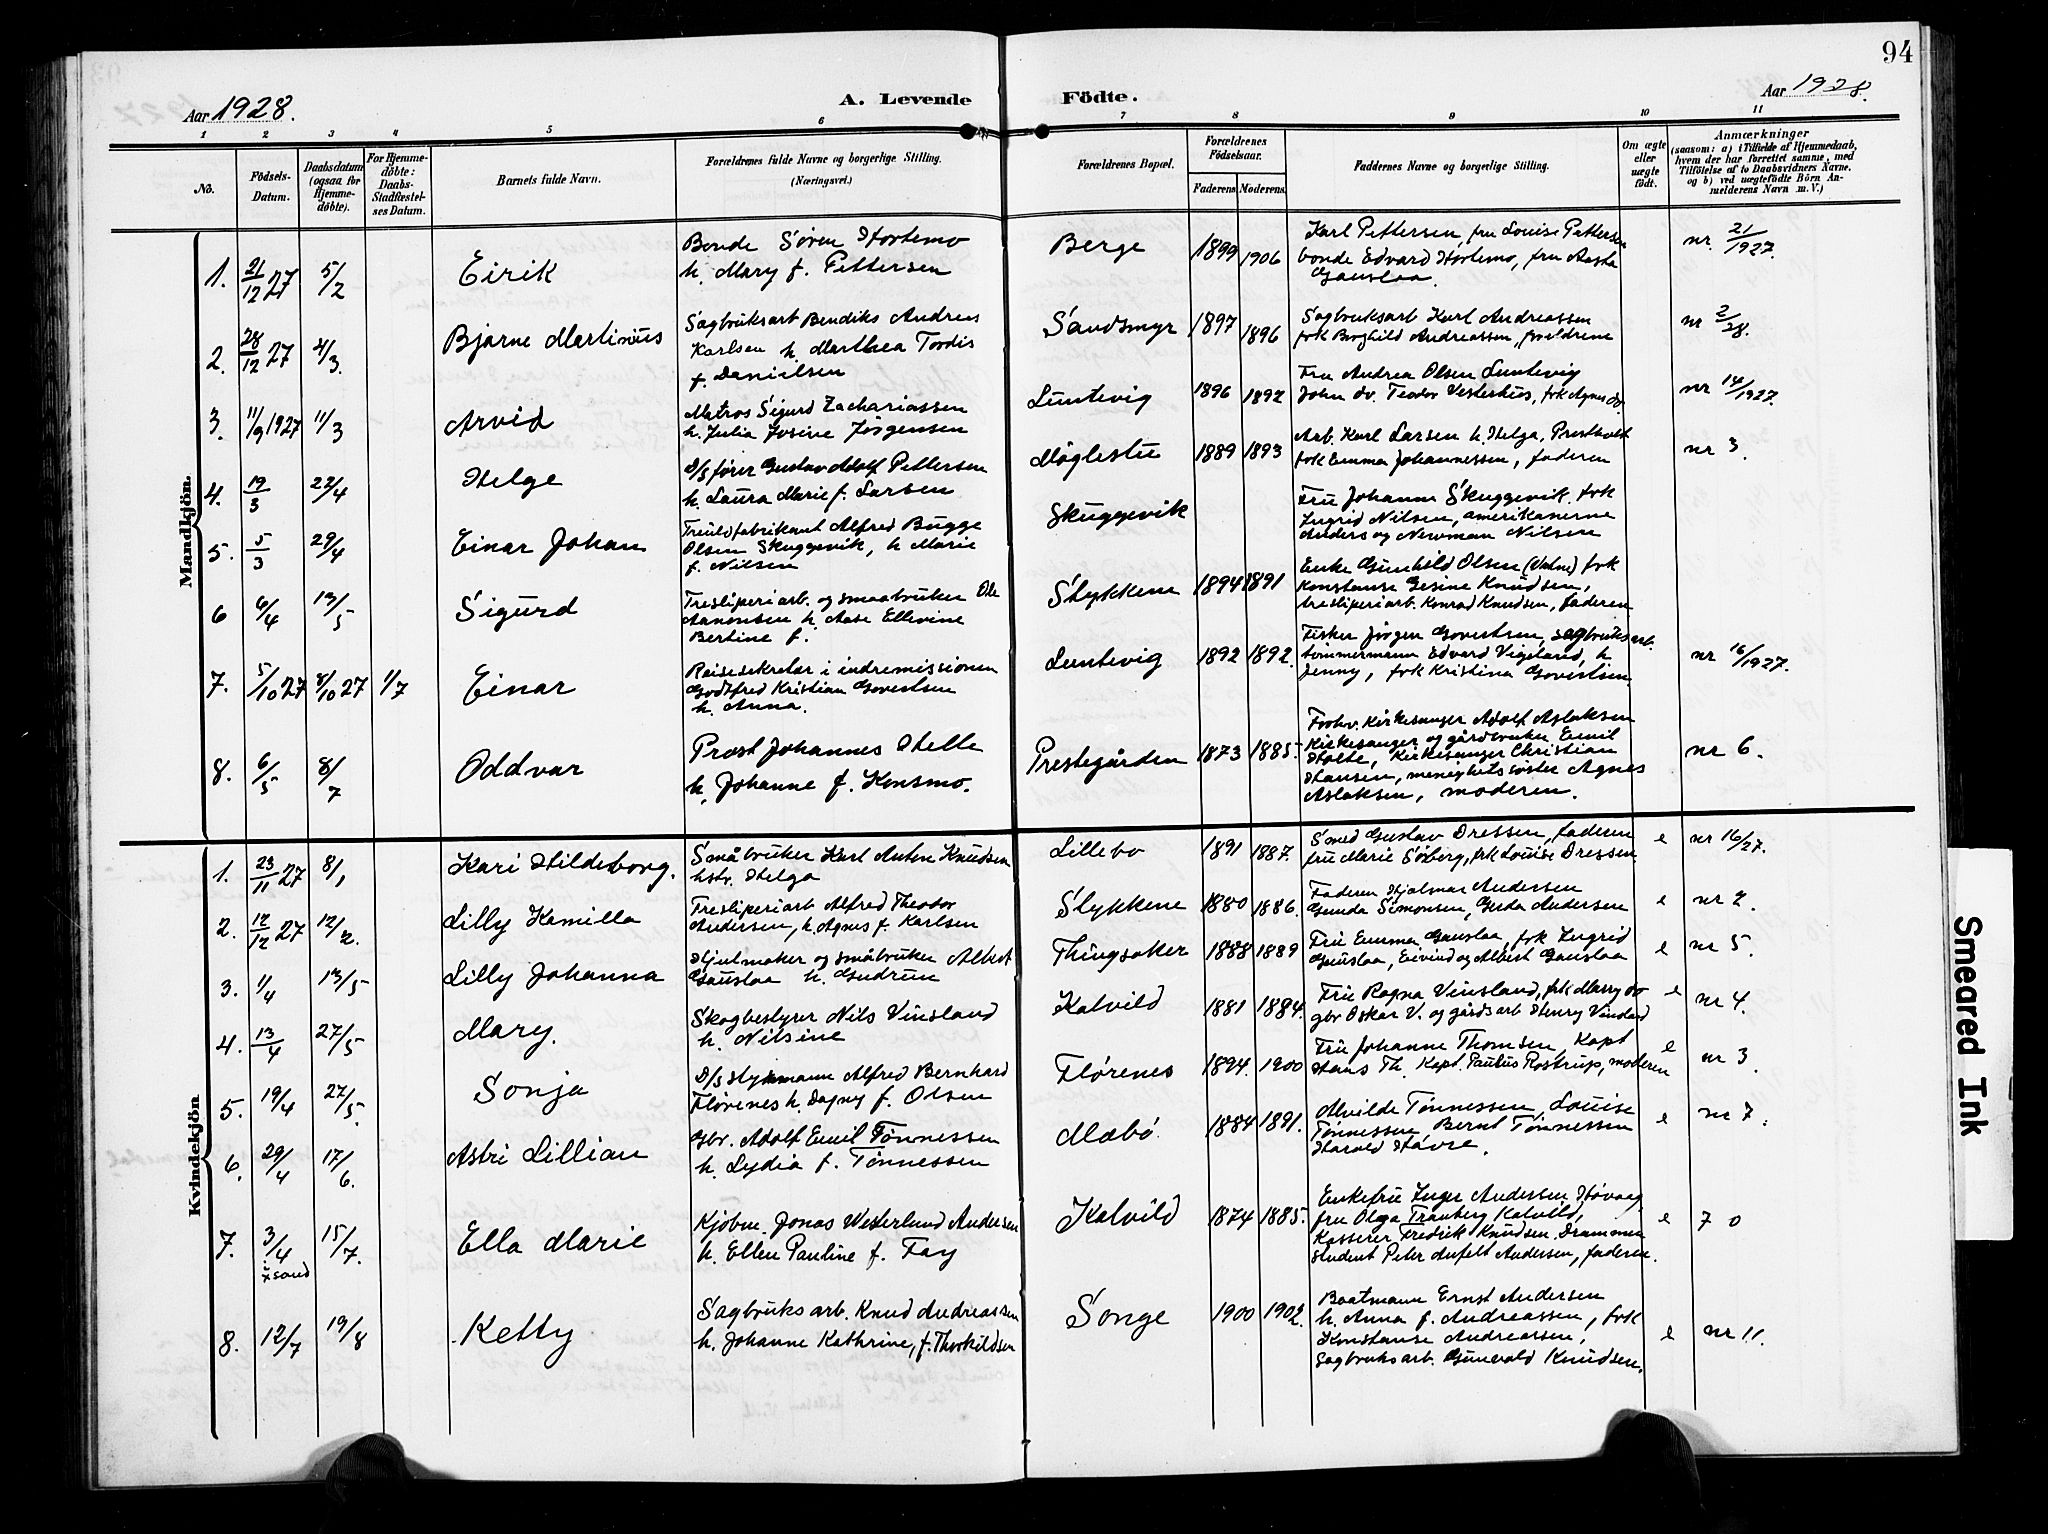 94
Aar 1928.
A. Levende
Födte.
Aar 1928.
1 2 3 4 5 6 7 8 9 10 11
No.
Födsels-
Datum.
Daabsdatum
(ogsaa for
Hjemme-
döbte).
For Hjemme-
döbte:
Daabs-
Stadfæstel-
ses Datum.
Barnets fulde Navn.
Forældrenes fulde Navne og borgerlige Stilling.
(Næringsvei.)
Forældrenes Bopæl.
Forældrenes
Födselsaar.
Faderens Moderens
Faddernes Navne og borgerlige Stilling.
Om ægte
eller
uægte
födt.
Anmærkninger
(saasom: a) i Tilfælde af Hjemmedaab,
hvem der har forrettet samme, med
Tilföielse af to Daabsvidners Navne.
og b) ved uægtefödte Börn An-
melderens Navn m. V.)
Mandkjön.
1. 21/12 27 5/2 Eirik
Bonde Søren Hortemo
h. Mary f. Pettersen
Berge 1899 1906
Karl Pettersen, fru Louise Pettersen
bonde Edvard Hortemo, fru Aasta
Gauslaa.
nr. 21/1927.
2. 28/12 27 4/3. Bjarne Martinius
Sagbruksarb Bendiks Andreas
Karlsen h. Marthea Tordis
f. Danielsen
Sandsmyr 1897 1896
Sagbruksarb Karl Andreassen
frk Borghild Andreassen, foreldrene
nr 2/28.
3. 11/9 1927 11/3 Arvid
Matros Sigurd Zachariassen
h. Julia Josine Jørgensen
Luntevig 1896 1892
Fru Andrea Olsen Luntevig
John do. Teodor Vesterhus, frk Agnes do
nr 14/1927.
4. 19/3 22/4 Helge
D/S fører Gustav Adolf Pettersen
h. Laura Marie f. Larsen
Møglestu 1889 1893
Arb. Karl Larsen h. Helga, Prestholt
frk Emma Johannessen, faderen
nr 3.
5. 5/3 29/4 Einar Johan
Treuldfabrikant Alfred Bugge
Olsen Skuggevik, h Marie
f. Nilsen
Skuggevik
Fru Johanne Skuggevik, frk
Ingrid Nilsen, amerikanerne
Anders og Newman Nilsen
6 6/4 13/5 Sigurd
Tresliperiarb. og smaabruker Ole
Aanonsen h. Aase Ellevine
Bertine f.
Stykkene 1894 1891
Enke Gunhild Olsen frk
Konstanse Gesine Knudsen,
tresliperiarb. Konrad Knudsen, faderen
7. 5/10 27 8/10 27 1/7 Einar
Reisesekretær i indremissionen
Godtfred Kristian Govertsen
h. Anna.
Luntevig 1892 1892.
Fisker Jörgen Govertsen, sagbruksarb.
tømmermann Edvard Vigeland, h
Jenny, frk Kristina Govertsen.
nr 16/1927.
8. 6/5 8/7 Oddvar
Prost Johannes Helle
h. Johanne f. Konsmo.
Prestegården 1873 1885.
Forhv. Kirkesanger Adolf Aslaksen
Kirkesanger og gårdbruker Emil
Holte, Kirkesanger Christian
Hansen, menighetssøster Agnes
Aslaksen, moderen.
nr 6.
Kvindekjön
1. 23/11 27 8/1 Kari Hildeborg.
Småbruker Karl Anton Knudsen
hstr. Helga
Lillebo 1891 1887.
Smed Gustav Dressen, faderen
fru Marie Söberg, frk Louise Dressen
e nr 16/27.
2. 12/12 27 12/2. Lilly Kamilla
Tresliperiarb Alfred Theodor
Andersen, h. Agnes f. Karlsen
Stykkene 1880 1886.
Faderen Hjalmar Andersen
Gunda Simonsen, Gerda Andersen
e nr 2.
3. 1/4 13/5 Lilly Johanna
Hjulmaker og småbruker Albert
Gauslaa h. Gudrun
Thingsaker 1888 1889
Fru Emma Gauslaa, frk Ingrid
Gauslaa, Eivind og Albert Gauslaa
e nr 5.
4. 13/4 27/5 Mary.
Skogbestyrer Nils Vinsland
h. Nilsine
Kalvild 1881 1884.
Fru Ragna Vinsland, frk Marry do
gbr Oskar V. og gårdsarb Henry Vinsland
e nr 4.
5. 19/4 27/5. Sonja
D/S styrmann Alfred Bernhard
Flörenes h. Dagny f. Olsen
Flörenes 1894. 1900
Fru Johanne Thomsen, Kapt
Hans Th. Kapt. Paulus Rostrup, moderen
e nr 3.
6. 29/4 17/6. Astri Lillian
Gbr. Adolf Emil Tönnessen
h. Lydia f. Tönnessen
Mæbö. 1884 1891.
Alvilde Tönnessen, Louise
Tönnessen Bernt Tönnessen
Harald Håvre.
e nr 7.
7. 3/4 15/7. Ella Marie
Kjöbm. Jonas Westerlund Andersen
h. Ellen Pauline f. Fay
Kalvild 1874 1885.
Enkefru Inger Andersen Hövaag,
fru Olga Tranberg Kalvild,
Kasserer Fredrik Knudsen Drammen
student Peter Anfelt Andersen, faderen.
e 7 0
8. 12/7 19/8 Ketty
Sagbruksarb. Knud Andreassen
h. Johanne Kathrine, f. Thorkildsen
Songe 1900 1902.
Baatmann Ernst Andersen
h. Anna f. Andreassen, frk
Konstanse Andreassen,
Sagbruksarb. Gunvald Knudsen.
e nr 11.
Smeared Ink